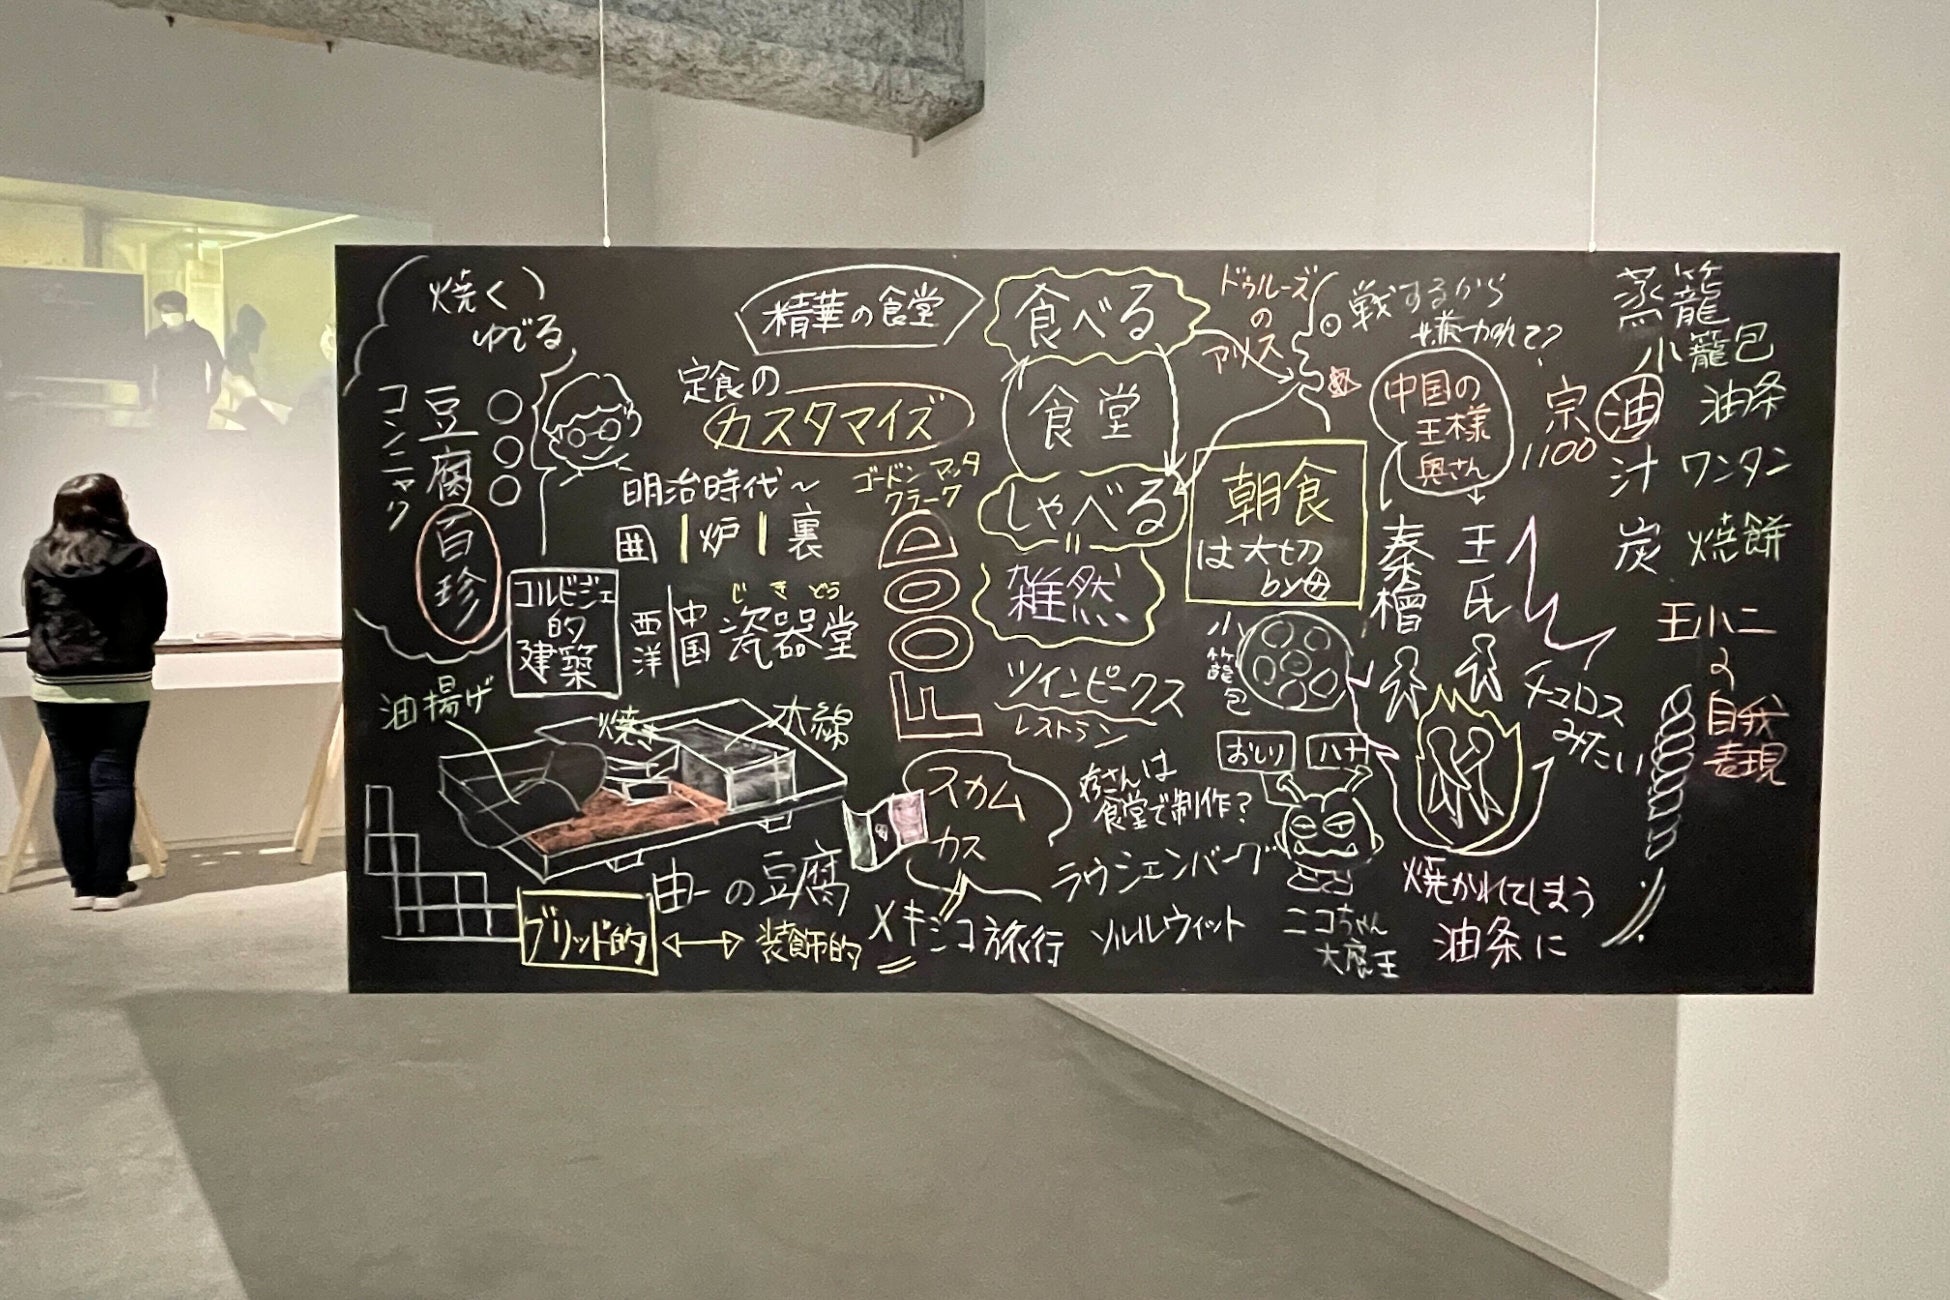 焼く
ゆでる
コンニャク
豆腐
百珍
精華の食堂
定食の
カスタマイズ
明治時代〜
囲|炉|裏
コルビジェ
的
建築
西洋
中国
じきどう
瓷器堂
油揚げ
焼き
木綿
由一の豆腐
グリッド的
装飾的
ゴードンマッタ
クラーク
FOOD
食べる
食堂
しゃべる
雑然
ツインピークス
レストラン
スカム
カス
メキシコ旅行
さんは
食堂で制作?
ラウシェンバーグ
ソルルウィット
ドゥルーズ
の
アリス
戦するから
嫌われて?
朝食
は大切
by母
小籠包
おしり
ハナ
ニコちゃん
大魔王
中国の
王様
奥さん
宗
1100
秦檜
王氏
チュロス
みたい
焼かれてしまう
油条に
蒸籠
小籠包
油
油条
汁
ワンタン
炭
焼餅
王小二
の
自我
表現